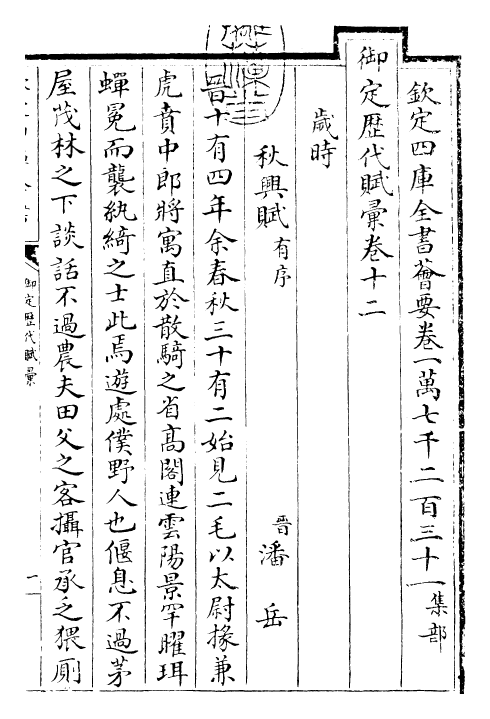 欽定四庫全書薈要卷一萬七千二百三十一集部
御定歴代賦彚卷十二
歲時
秋興賦有序 晋潘岳
晋十有四年余春秋三十有二始見二毛以太尉掾兼
虎賁中郎將寓直於散騎之省高閣連雲陽景罕曜珥
蟬冕而襲紈綺之士此焉遊處僕野人也偃息不過茅
屋茂林之下談話不過農夫田父之客攝官承乏猥厠
御定歴代賦彚
一